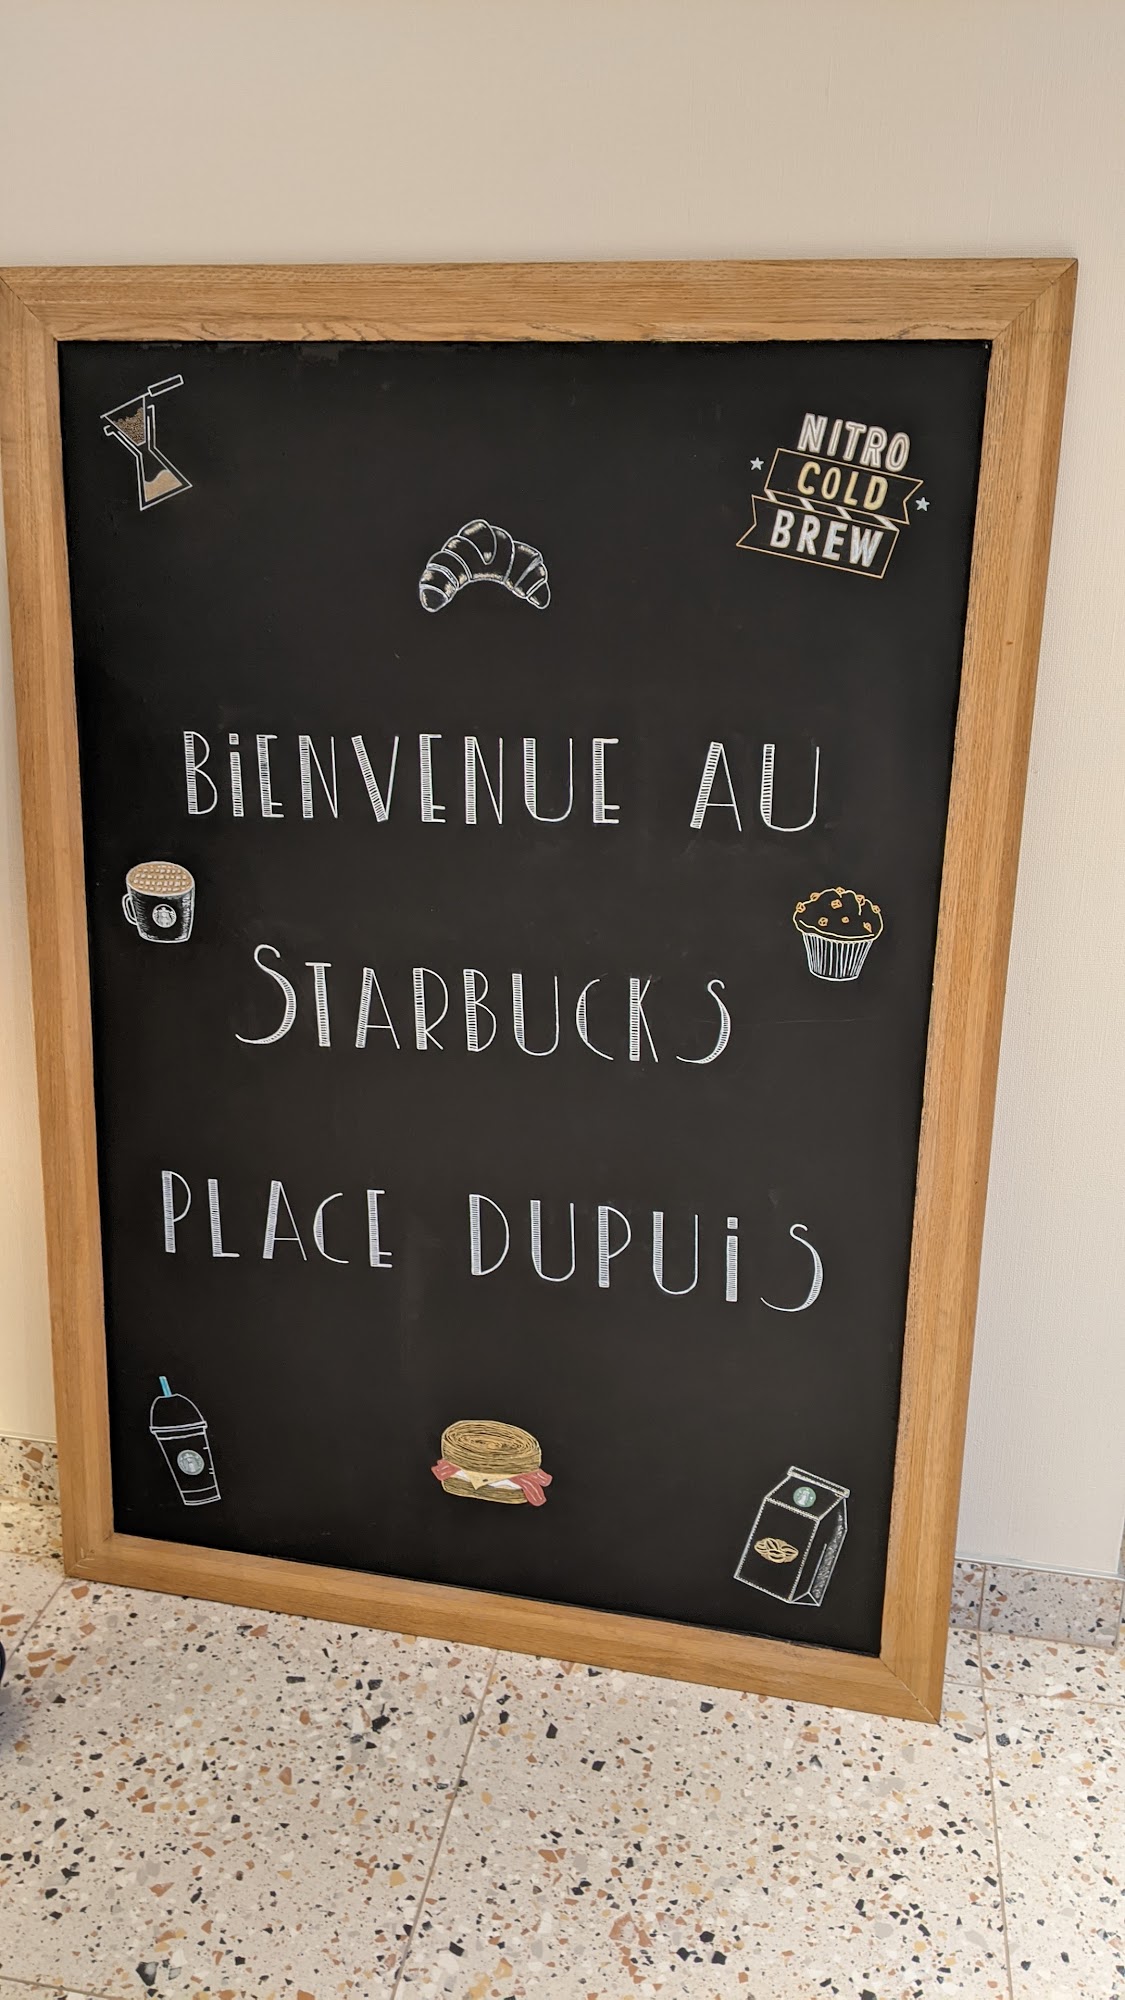 NITRO
COLD
BREW
BiENVENUE AU
STARBUCKS
PLACE DUPUiS